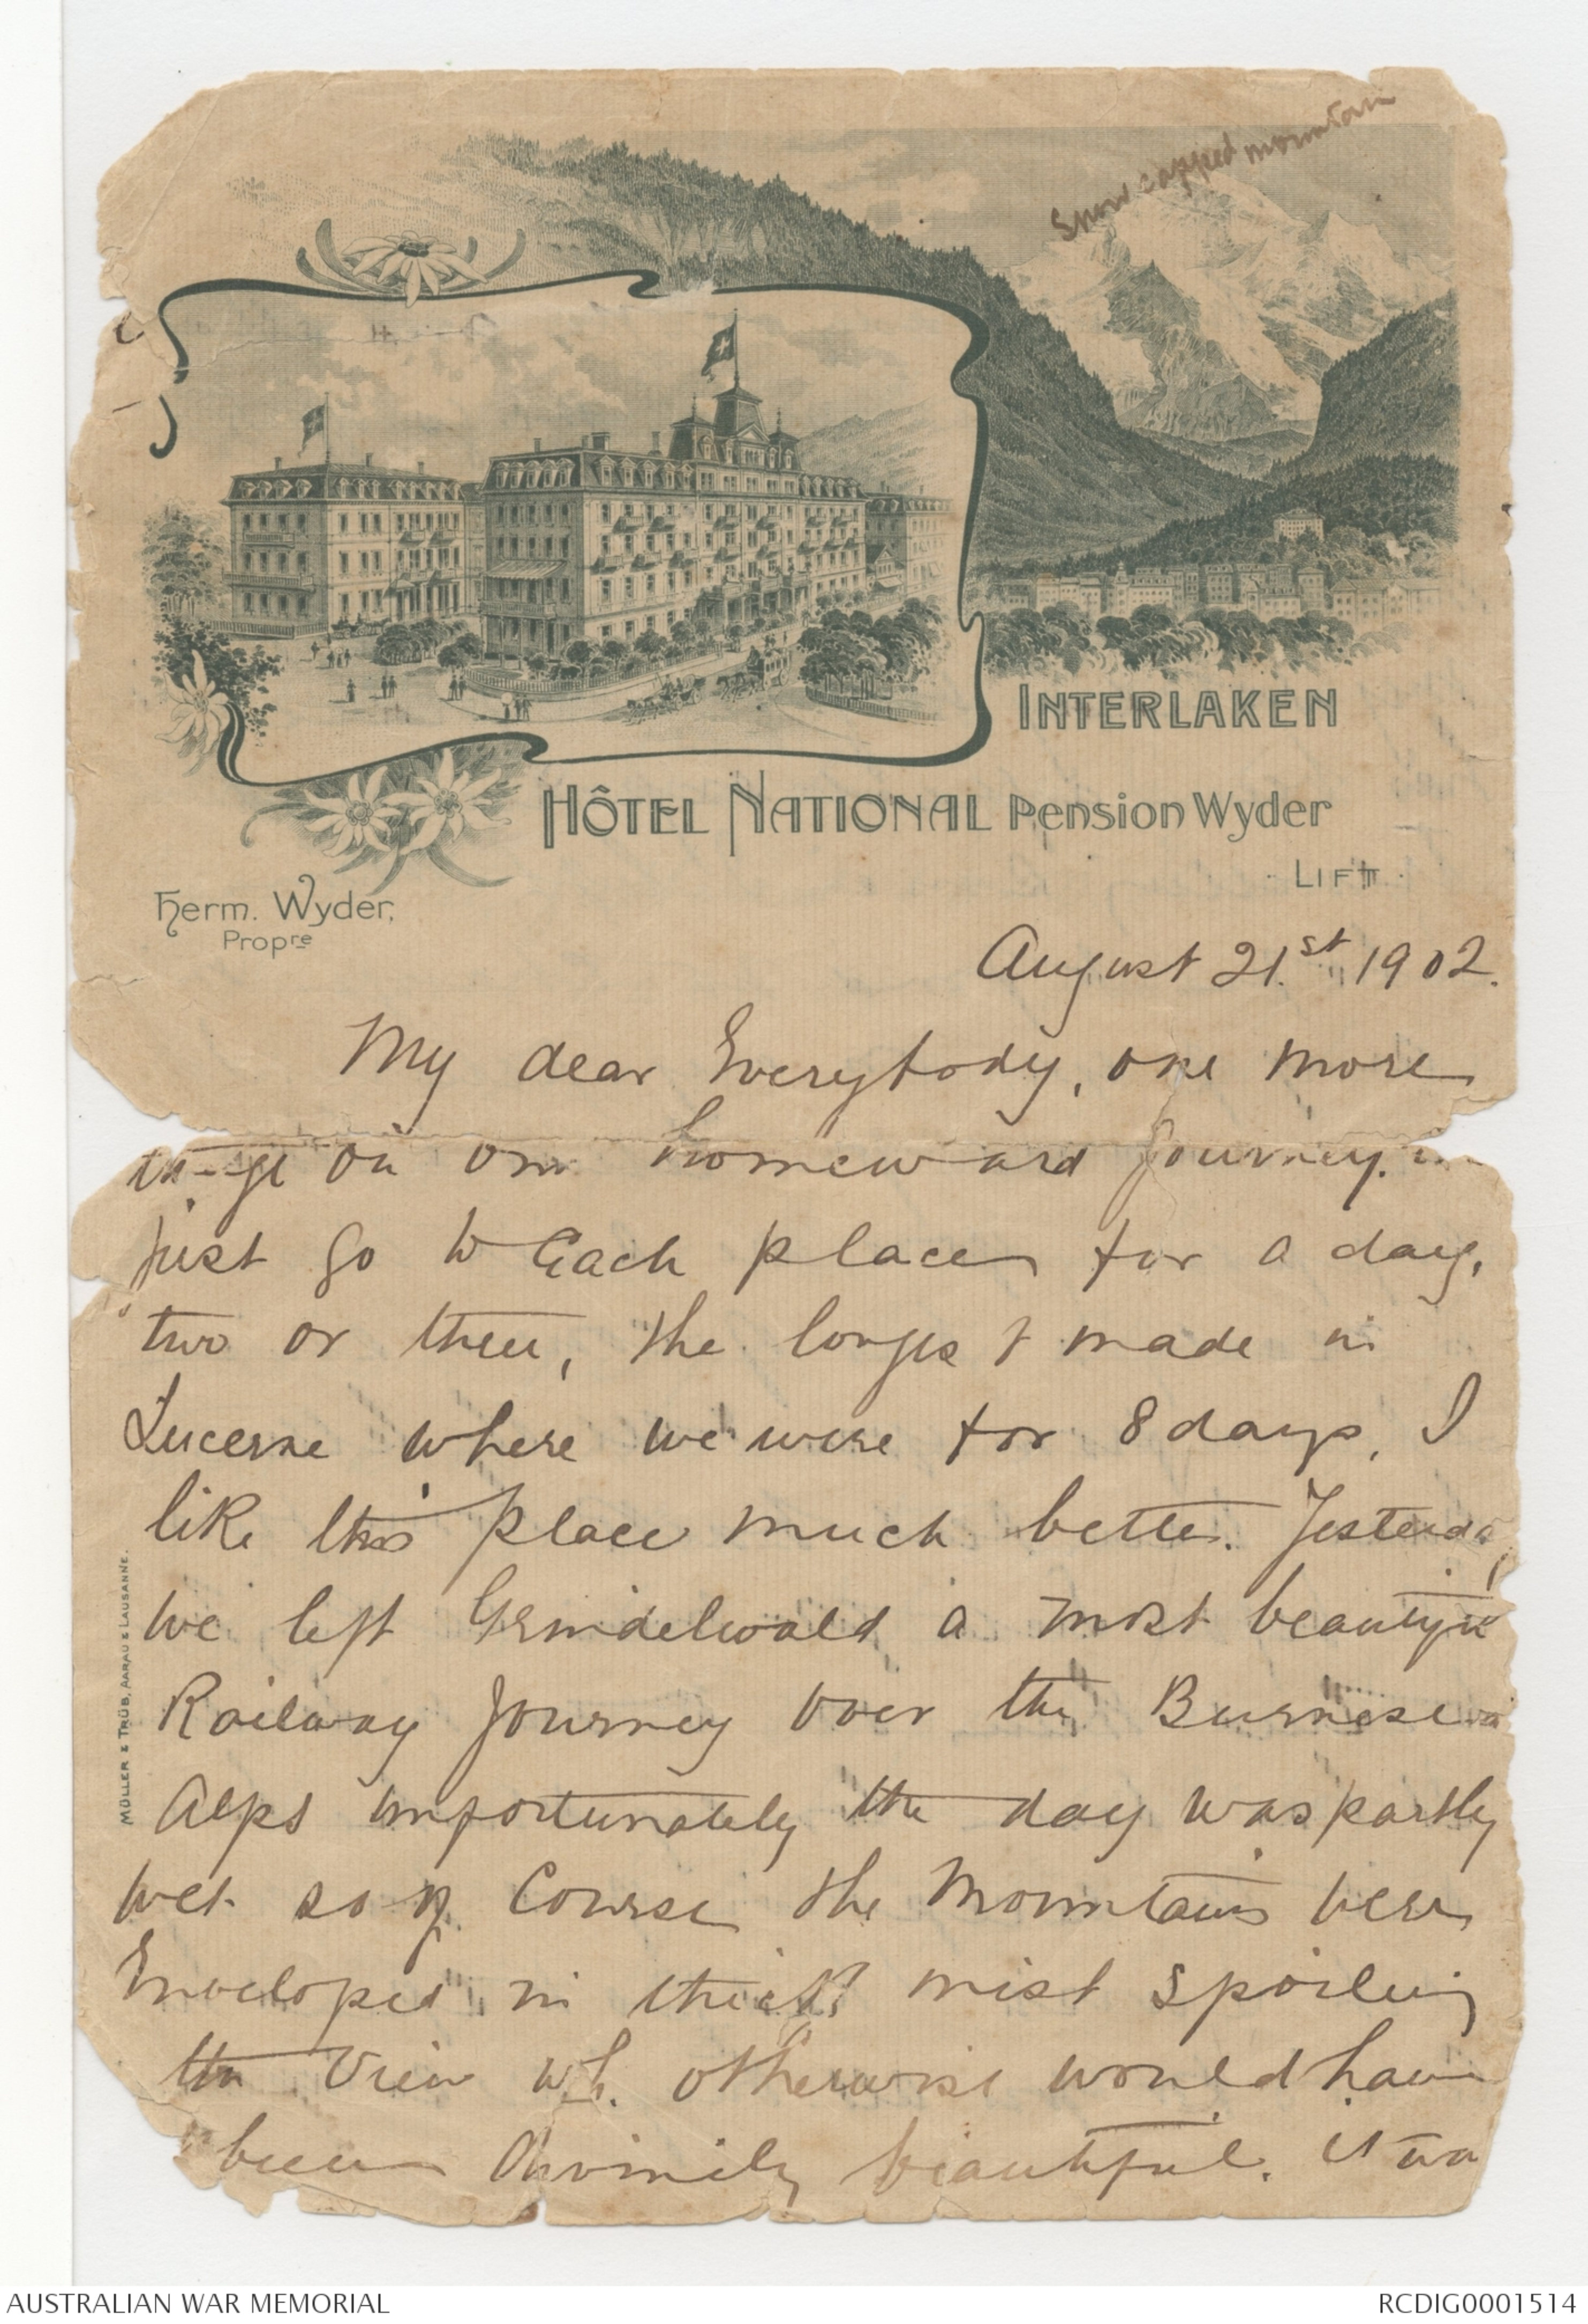 Snow capped mountain
INTERLAKEN
HÔTEL NATIONAL Pension Wyder
· LIFT ·
Herm. Wyder,
Propre
August 21.st 1902.
My dear Everybody, one more
stage on our homeward journey.
just go to Each place for a day,
two or three, the longest made in
Lucerne where we were for 8 days, I
like this place much better. Yesterday
we left Grindelwald a most beautiful
Railway Journey over the Burnese
Alps unfortunately the day was partly
wet so of Course the Mountains were
Enveloped in thick mist spoiling
the View wh. otherwise would have
been divinely beautiful. it was
MÜLLER & TRÜB, AARAU & LAUSANNE.
AUSTRALIAN WAR MEMORIAL
RCDIG0001514